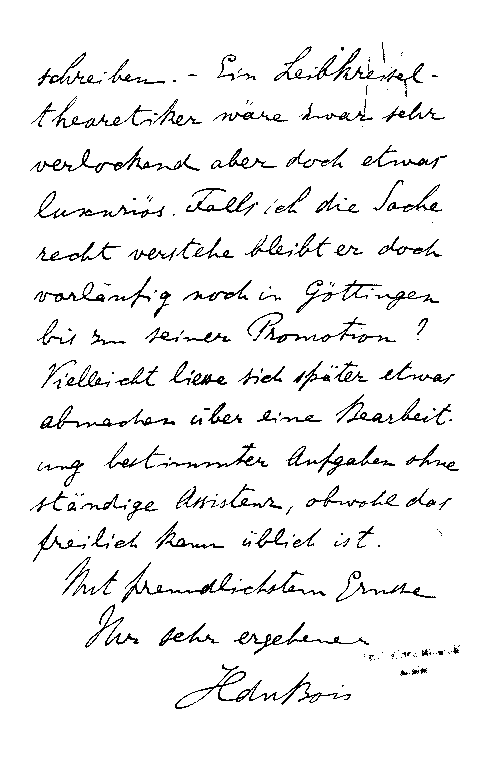 schreiben. – Ein Leibkreisel-
theoretiker wäre zwar sehr
verlockend aber doch etwas
luxuriös. Falls ich die Sache
recht verstehe bleibt er doch
vorläufig noch in Göttingen
bis zu seiner Promotion?
Vielleicht liesse sich später etwas
abmachen über eine Bearbeit-
ung bestimmter Aufgaben ohne
ständige Assistenz, obwohl das
freilich kaum üblich ist.
Mit freundlichstem Grusse
Ihr sehr ergebener
HduBois